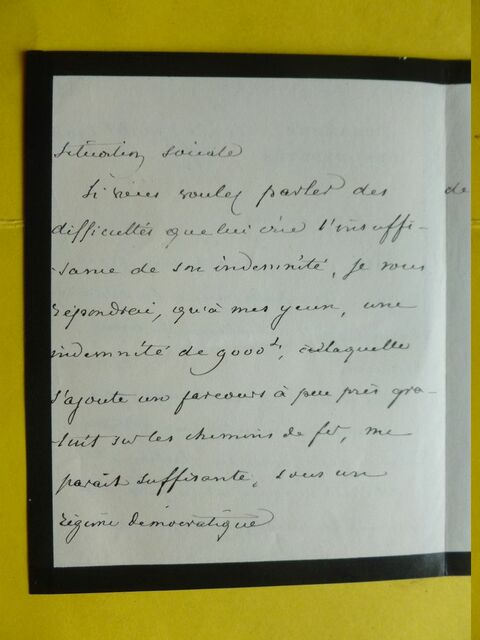 situation sociale
Si vous voulez parler des
difficultés que lui crée l'insuffi-
-sance de son indemnité, je vous
répondrai, qu'à mes yeux, une
indemnité de 9000f, à laquelle
s'ajoute un parcours à peu près gra-
-tuit sur les chemins de fer, me
paraît suffisante, sous un
régime démocratique
de